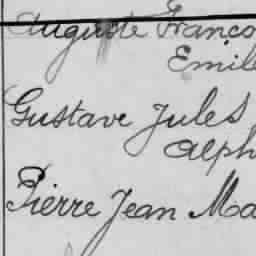 Auguste Franço
Emile
Gustave Jules
Alph
Pierre Jean Ma